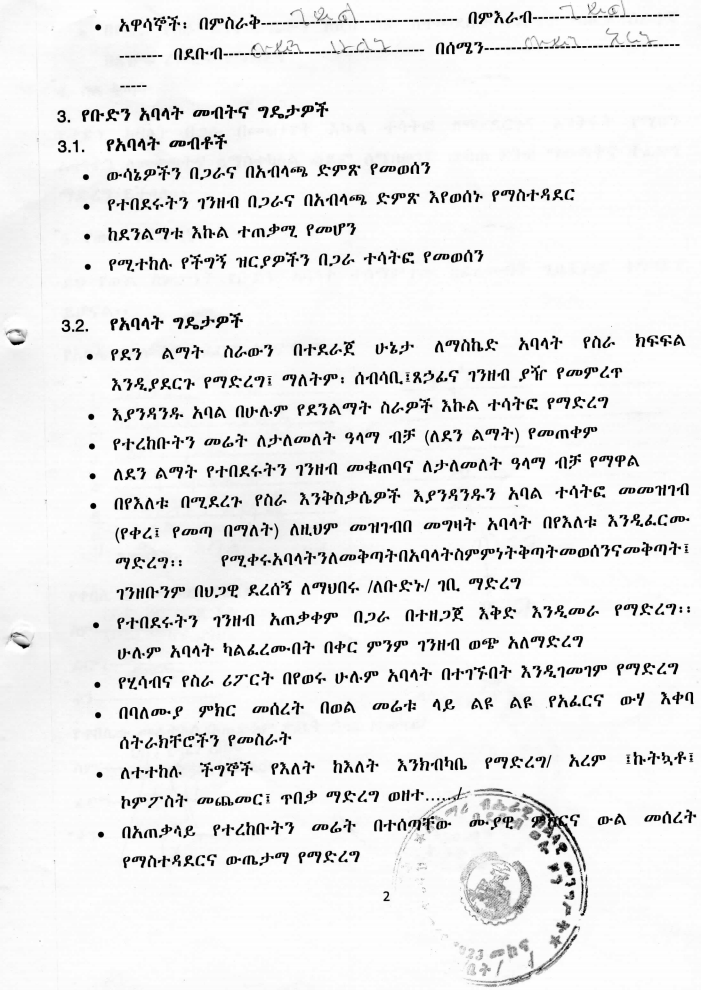 • አዋሳኞች፡ በምስራቅ------------------------------- በምእራብ-----------------------
----------- በደቡብ-------------------------------- በሰሜን-------------------------------
-----
3. የቡድን አባላት መብትና ግዴታዎች
3.1. የአባላት መብቶች
• ውሳኔዎችን በጋራና በአብላጫ ድምጽ የመወሰን
• የተበደሩትን ገንዘብ በጋራና በአብላጫ ድምጽ እየወሰኑ የማስተዳደር
• ከደንልማቱ እኩል ተጠቃሚ የመሆን
• የሚተከሉ የችግኝ ዝርያዎችን በጋራ ተሳትፎ የመወሰን
3.2. የአባላት ግዴታዎች
• የደን ልማት ስራውን በተደራጀ ሁኔታ ለማስኬድ አባላት የስራ ክፍፍል
እንዲያደርጉ የማድረግ፤ ማለትም፡ ሰብሳቢ፤ጸኃፊና ገንዘብ ያዥ የመምረጥ
• እያንዳንዱ አባል በሁሉም የደንልማት ስራዎች እኩል ተሳትፎ የማድረግ
• የተረከቡትን መሬት ለታለመለት ዓላማ ብቻ (ለደን ልማት) የመጠቀም
• ለደን ልማት የተበደሩትን ገንዘብ መቁጠባና ለታለመለት ዓላማ ብቻ የማዋል
• በየእለቱ በሚደረጉ የስራ እንቅስቃሴዎች እያንዳንዱን አባል ተሳትፎ መመዝገብ
(የቀረ፤ የመጣ በማለት) ለዚህም መዝገብበ መግዛት አባላት በየእለቱ እንዲፈርሙ
ማድረግ፡፡ የሚቀሩአባላትንለመቅጣትበአባላትስምምነትቅጣትመወሰንናመቅጣት፤
ገንዘቡንም በህጋዊ ደረሰኝ ለማህበሩ /ለቡድኑ/ ገቢ ማድረግ
• የተበደሩትን ገንዘብ አጠቃቀም በጋራ በተዘጋጀ እቅድ እንዲመራ የማድረግ፡፡
ሁሉም አባላት ካልፈረሙበት በቀር ምንም ገንዘብ ወጭ አለማድረግ
• የሂሳብና የስራ ሪፖርት በየወሩ ሁሉም አባላት በተገኙበት እንዲገመገም የማድረግ
• በባለሙያ ምክር መሰረት በወል መሬቱ ላይ ልዩ ልዩ የአፈርና ውሃ እቀባ
ሰትራክቸሮችን የመስራት
• ለተተከሉ ችግኞች የእለት ከእለት እንክብካቤ የማድረግ/ አረም ፤ኩትኳቶ፤
ኮምፖስት መጨመር፤ ጥበቃ ማድረግ ወዘተ....../
• በአጠቃላይ የተረከቡትን መሬት በተሰጣቸው ሙያዊ ምክርና ውል መሰረት
የማስተዳደርና ውጤታማ የማድረግ
2